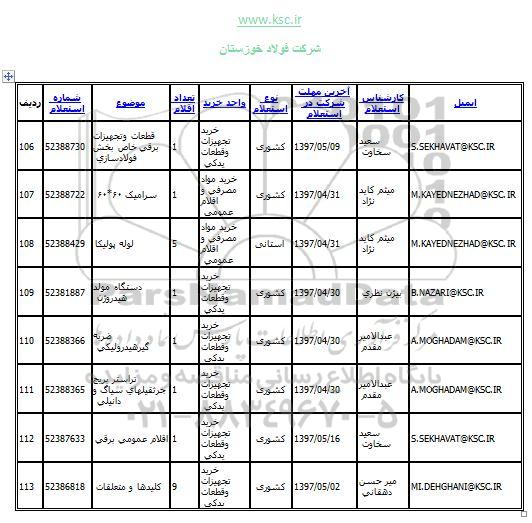 www.ksc.ir
شرکت فولاد خوزستان
ردیف | شماره استعلام | موضوع | تعداد اقلام | واحد خرید | نوع استعلام | آخرین مهلت شرکت در استعلام | کارشناس استعلام | ایمیل
106 | 52388730 | قطعات وتجهیزات برقي خاص بخش فولادسازي | 1 | خرید تجهیزات وقطعات یدکي | کشوری | 1397/05/09 | سعید سخاوت | S.SEKHAVAT@KSC.IR
107 | 52388722 | سرامیک ۶۰*۶۰ | 1 | خرید مواد مصرفي و اقلام عمومي | کشوری | 1397/04/31 | میثم کاید نژاد | M.KAYEDNEZHAD@KSC.IR
108 | 52388429 | لوله پولیکا | 5 | خرید مواد مصرفي و اقلام عمومي | استانی | 1397/04/31 | میثم کاید نژاد | M.KAYEDNEZHAD@KSC.IR
109 | 52381887 | دستگاه مولد هیدروژن | 1 | خرید تجهیزات وقطعات یدکي | کشوری | 1397/04/30 | بیژن نظري | B.NAZARI@KSC.IR
110 | 52388366 | ضربه گیرهیدرولیکي | 1 | خرید تجهیزات وقطعات یدکي | کشوری | 1397/04/30 | عبدالامیر مقدم | A.MOGHADAM@KSC.IR
111 | 52388365 | تراستر بریج جرثقیلهاي سیاگ و دانیلي | 1 | خرید تجهیزات وقطعات یدکي | کشوری | 1397/04/30 | عبدالامیر مقدم | A.MOGHADAM@KSC.IR
112 | 52387633 | اقلام عمومي برقي | 1 | خرید تجهیزات وقطعات یدکي | کشوری | 1397/05/16 | سعید سخاوت | S.SEKHAVAT@KSC.IR
113 | 52386818 | کلیدها و متعلقات | 9 | خرید تجهیزات وقطعات یدکي | کشوری | 1397/05/02 | میر حسن دهقاني | MI.DEHGHANI@KSC.IR
ParsNamadData
پایگاه اطلاع رسانی مناقصه و مزایده
۰۲۱-۸۸۳۴۹۶۷۰-۵